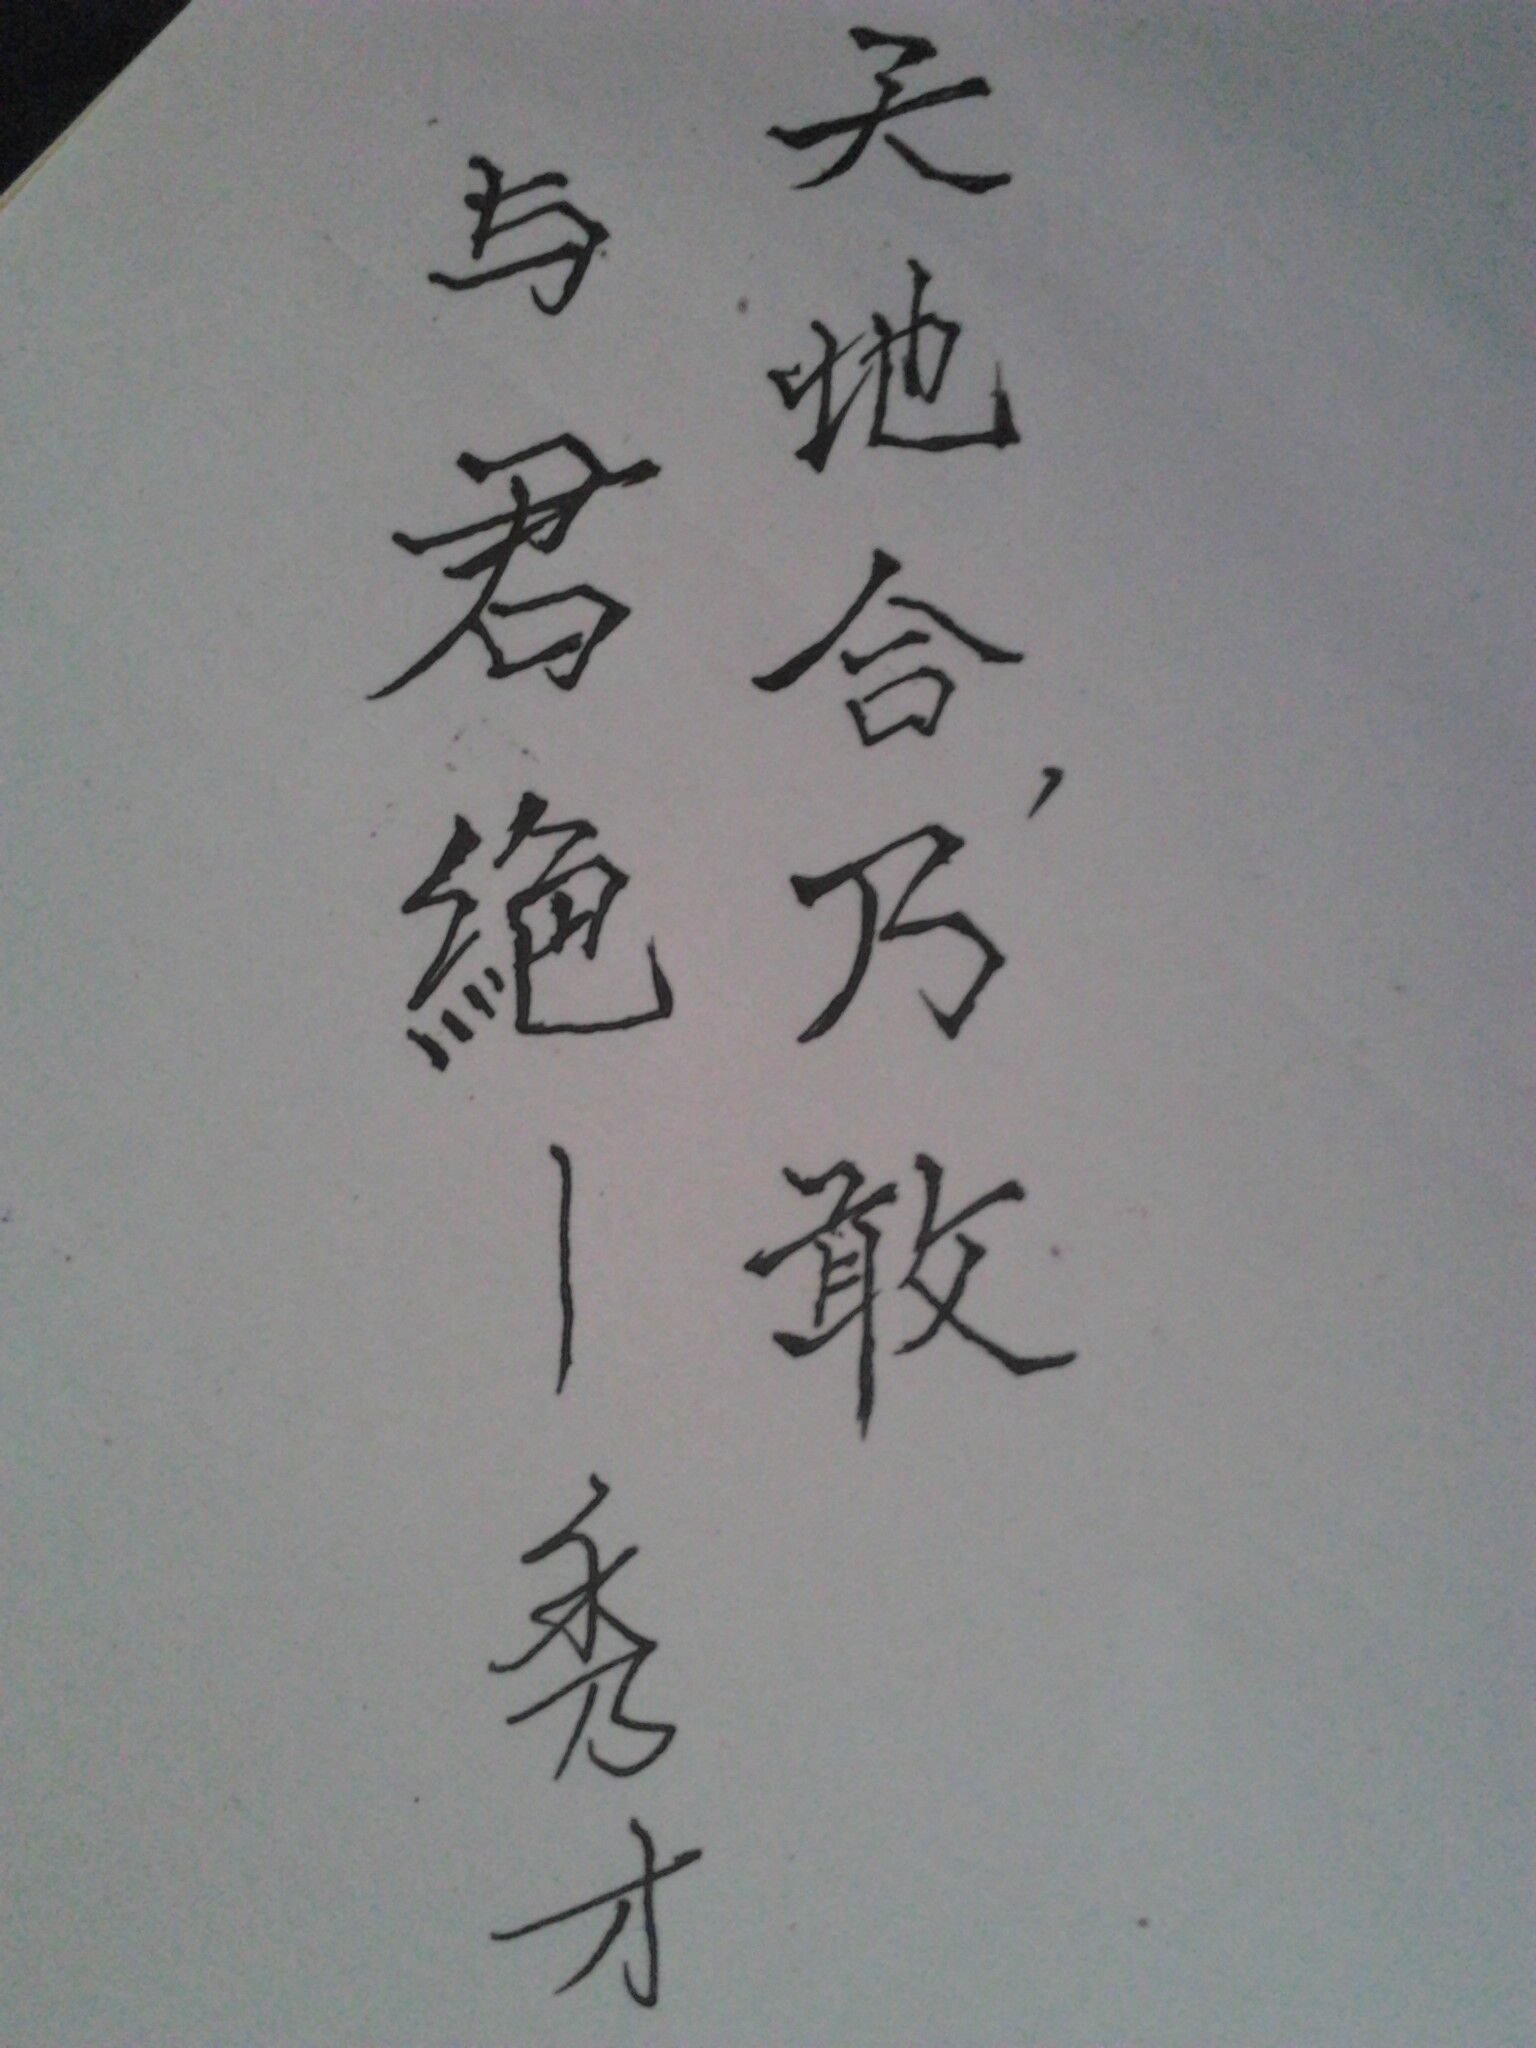 天地合，乃敢
与君絶—秀才